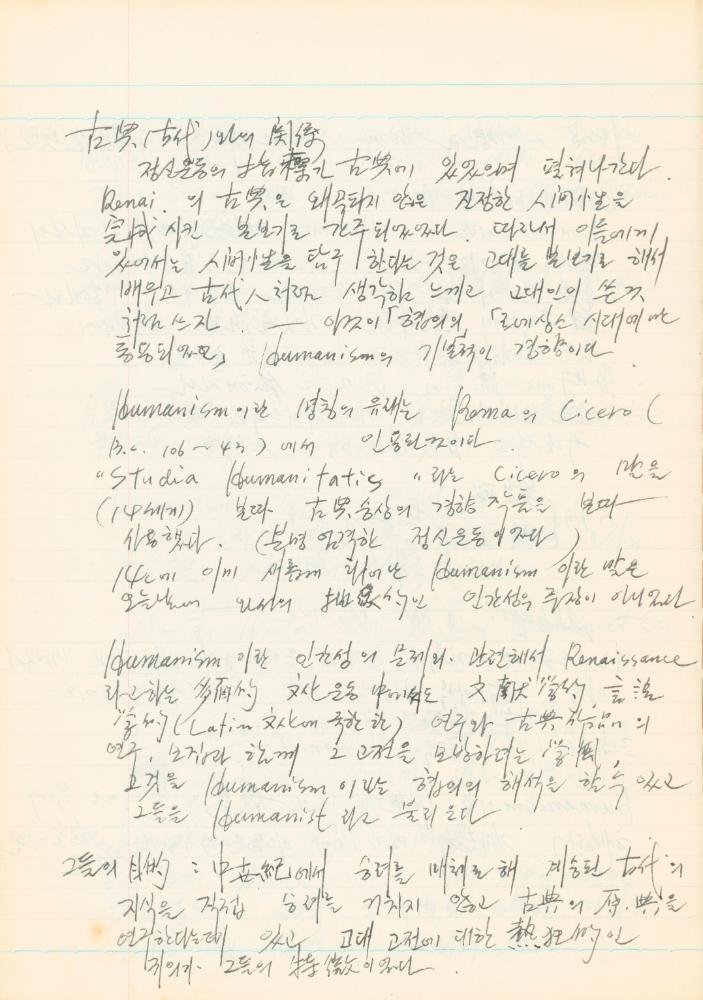 古典(古代)와의 関係
정신운동의 指標가 古典에 있었으며 펼쳐나간다.
Renai. 의 古典은 왜곡되지 않은 진정한 人間性을
完成시킨 본보기로 간주되었었다. 따라서 이들에게
있어서는 人間性을 탐구한다는 것은 고대를 본보기로 해서
배우고 古代人처럼 생각하고 느끼고 고대인이 쓴것
처럼 쓰자. — 이것이「협의의」「르네상스 시대에만
통용되었던」 Humanism의 기본적인 경향이다
Humanism이란 명칭의 유래는 Roma의 Cicero (
B.C. 106 ~ 43) 에서 인용된것이다.
"Studia Humanitatis "라는 Cicero의 말을
(14세기) 본따 古典숭상의 경향 본따
사용했다. (분명 엄격한 정신운동이었다)
14C에 이미 새롭게 태어난 Humanism 이란 말은
오늘날에 와서의 인간성의 주장이 아니었다
Humanism이란 인간성의 문제와 관련해서 Renaissance
라고하는 多面的 文化운동 中에서도 文献学的, 言語
学的(Latin文化에 국한한) 연구와 古典作品의
연구, 모집과 함께 그 고전을 모방하려는 学風,
그것을 Humanism이라는 협의의 해석을 할 수 있고
그들을 Humanist 라고 불리운다.
그들의 目的 : 中世紀에서 승려를 매체로 해 계승된 古代의
지식을 직접 승려를 거치지 않고 古典의 原.典을
연구한다는데 있고, 고대 고전에 대한 熱狂的인
주의가 그들의 特徵이었다.